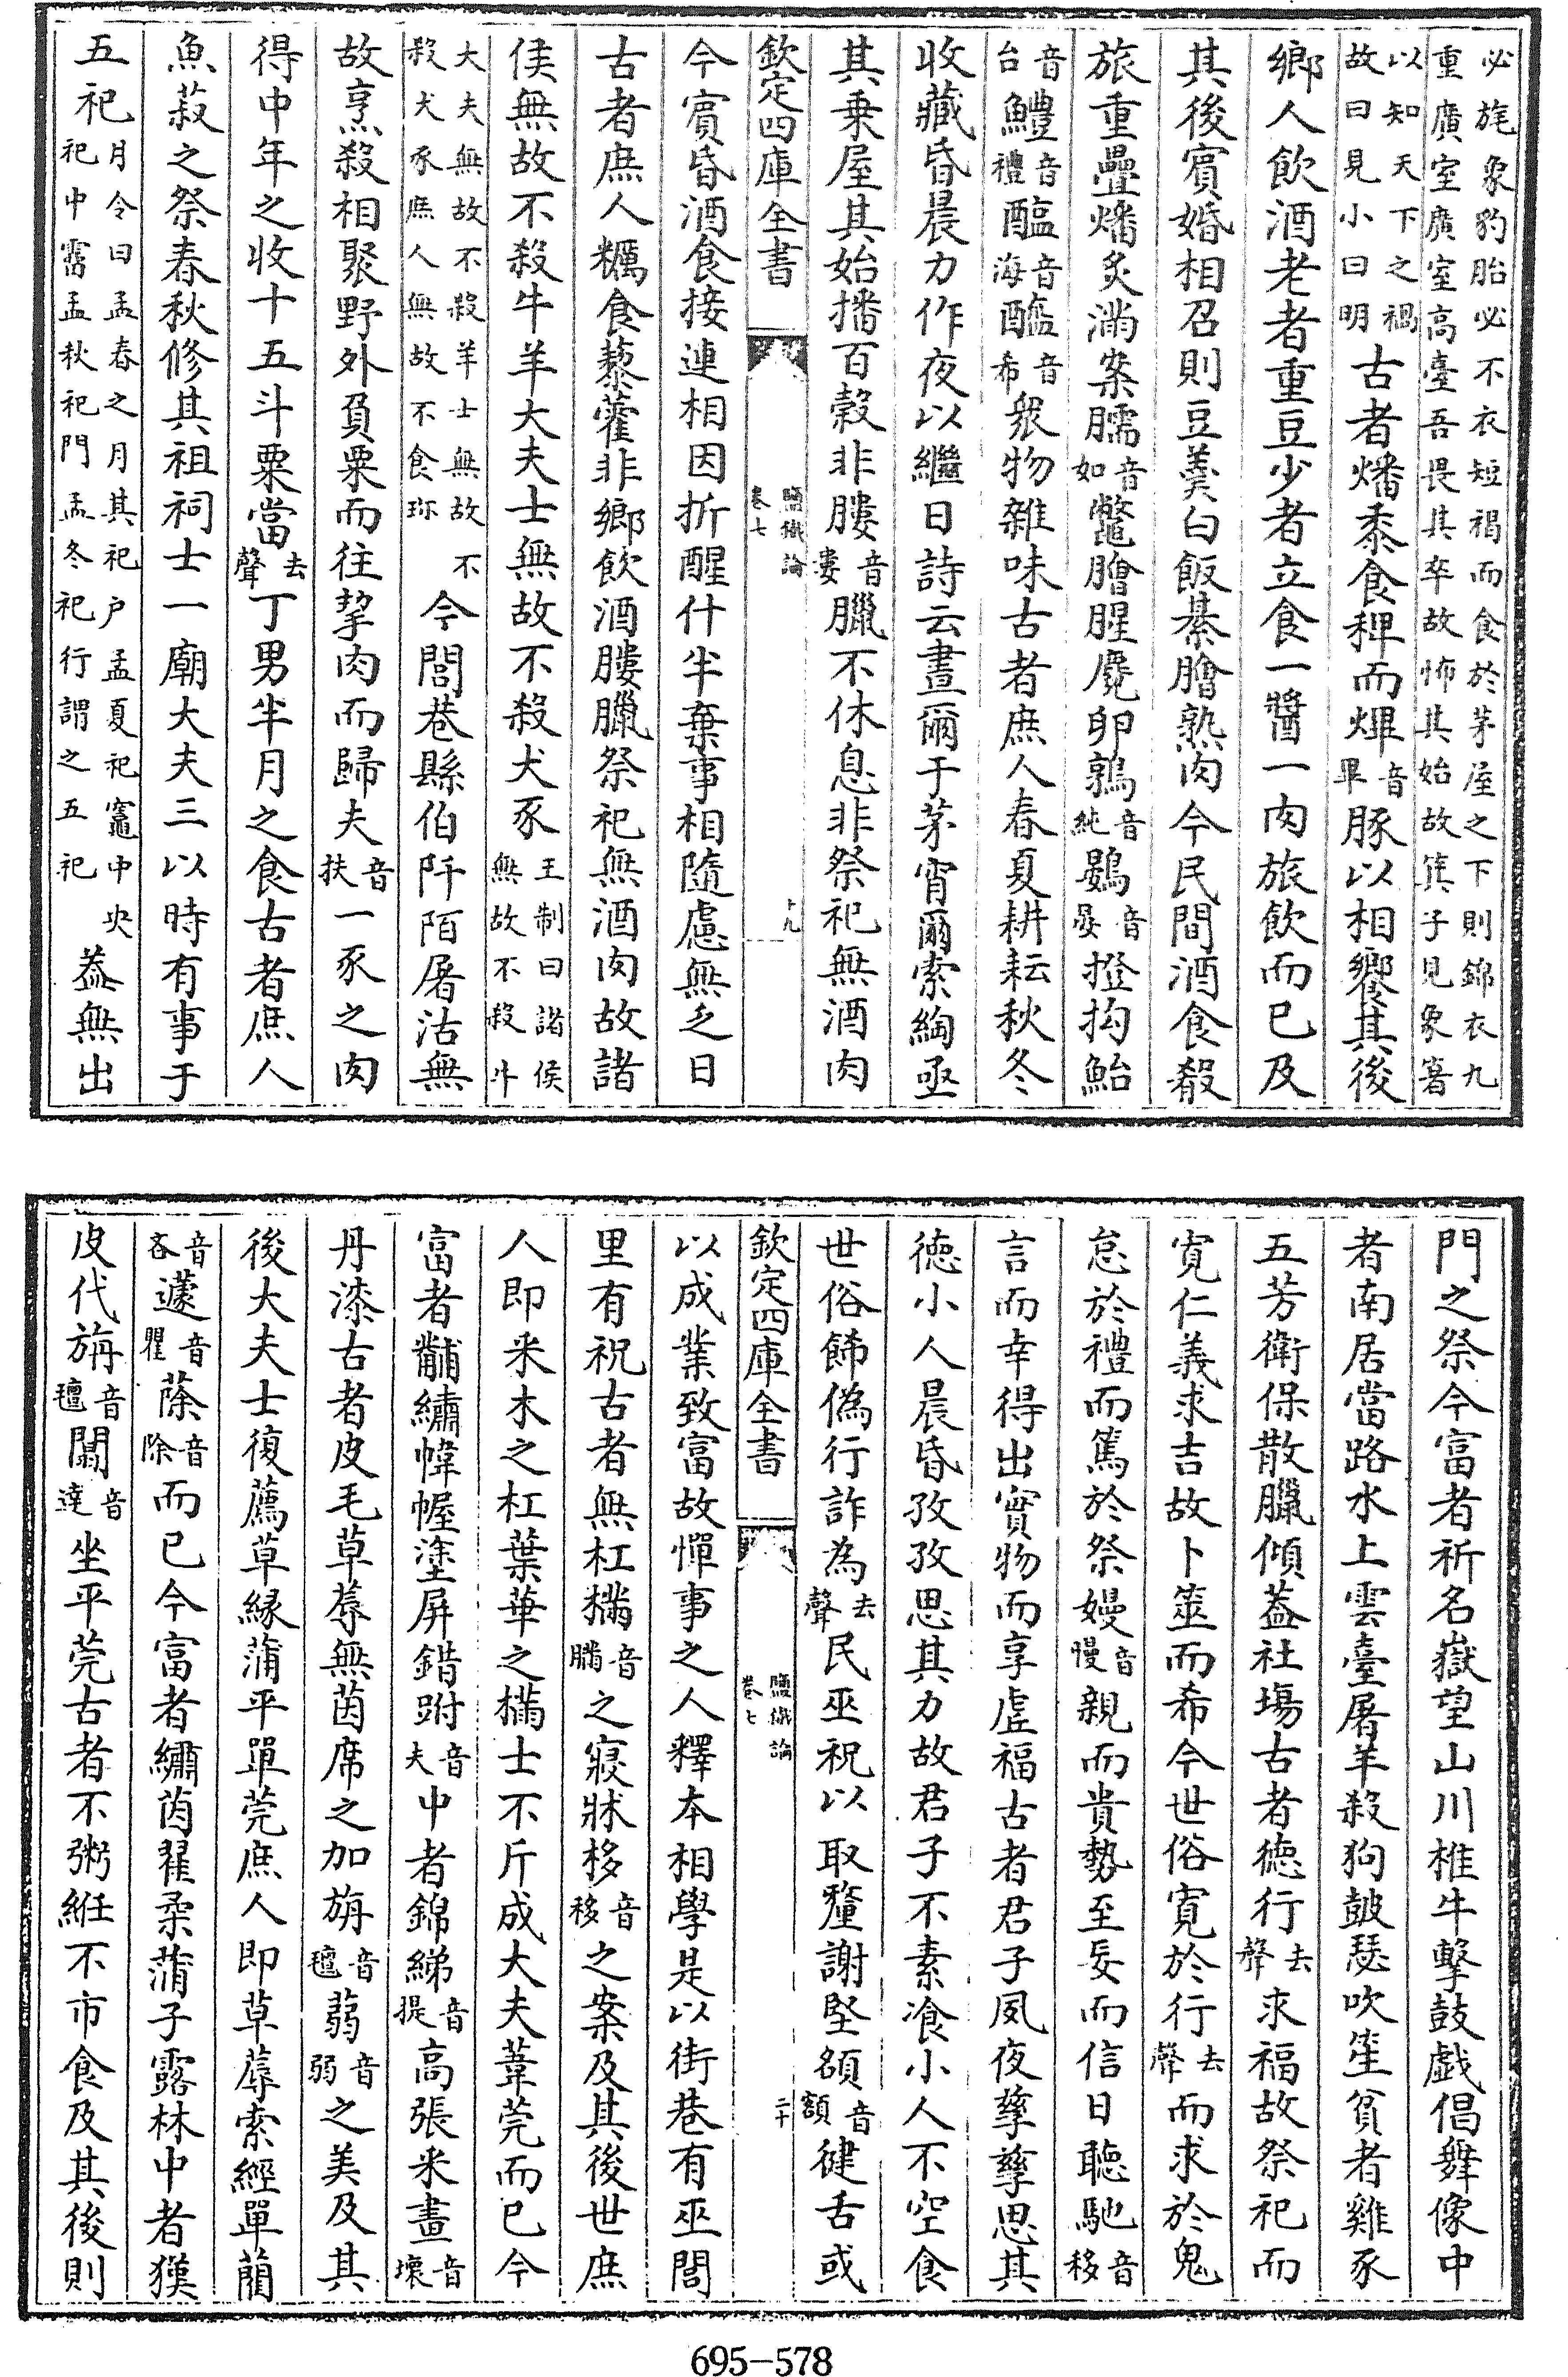 必旄象豹胎必不衣短褐而食於茅屋之下則錦衣九
重廣室廣室高臺吾畏其卒故怖其始故箕子見象箸
以知天下之禍
故曰見小曰明古者燔黍食稗而㷶音畢豚以相饗其後
鄉人飲酒老者重豆少者立食一醬一肉旅飲而已及
其後賓婚相召則豆羹白飯綦膾熟肉今民間酒食殽
旅重疊燔炙滿案臑音如鼈膾腥麑卵鶉音純鷃音晏橙枸鮐
音台鱧音禮醢音海醯音希衆物雜味古者庶人春夏耕耘秋冬
收藏昏晨力作夜以繼日詩云晝爾于茅宵爾索綯亟
其乗屋其始播百穀非膢音婁臘不休息非祭祀無酒肉
欽定四庫全書 鹽鐵論 卷七 十九
今賓昏酒食接連相因折酲什半棄事相隨慮無乏日
古者庶人糲食藜藿非鄉飲酒膢臘祭祀無酒肉故諸
侯無故不殺牛羊大夫士無故不殺犬豕王制曰諸侯無故不殺牛
大夫無故不殺羊士無故不殺犬豕庶人無故不食珍今閭巷縣伯阡陌屠沽無
故烹殺相聚野外負粟而往挈肉而歸夫音扶一豕之肉
得中年之收十五斗粟當去聲丁男半月之食古者庶人
魚菽之祭春秋修其祖祠士一廟大夫三以時有事于
五祀月令曰孟春之月其祀户孟夏祀竈中央祀中霤孟秋祀門孟冬祀行謂之五祀葢無出
門之祭今富者祈名嶽望山川椎牛擊鼓戯倡舞像中
者南居當路水上雲臺屠羊殺狗鼓瑟吹笙貧者雞豕
五芳衛保散臘傾葢社塲古者徳行去聲求福故祭祀而
寛仁義求吉故卜筮而希今世俗寛於行去聲而求於鬼
怠於禮而篤於祭嫚音慢親而貴勢至妄而信日聽馳音移
言而幸得出實物而享虛福古者君子夙夜孳孳思其
徳小人晨昏孜孜思其力故君子不素飡小人不空食
世俗飾偽行詐為去聲民巫祝以取釐謝堅頟音額健舌或
欽定四庫全書 鹽鐵論 卷七 二十
以成業致富故憚事之人釋本相學是以街巷有巫閭
里有祝古者無杠樠音膴之寢牀栘音移之案及其後世庶
人即采木之杠葉華之樠士不斤成大夫葦莞而已今
富者黼繡幃幄塗屏錯跗音夫中者錦綈音提高張采畫音壞
丹漆古者皮毛草蓐無茵席之加旃音氊蒻音弱之美及其
後大夫士復薦草緣蒲平單莞庶人即草蓐索經單藺
音吝蘧音瞿蒢音除而已今富者繡茵翟柔蒲子露林中者獏
皮代旃音氊闒音達坐平莞古者不粥絍不市食及其後則
695-578